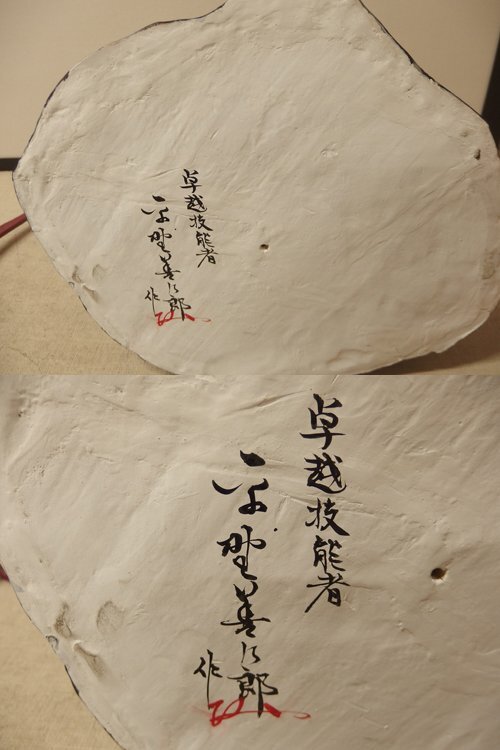 卓越技能者
野善次郎
作
卓越技能者
野善次郎
作